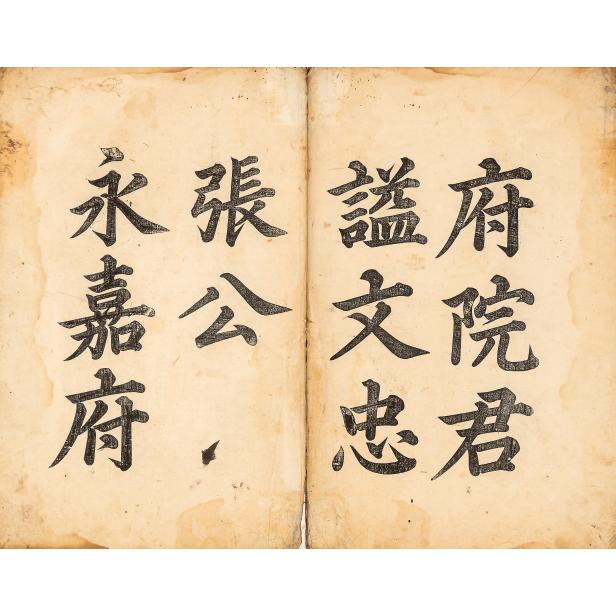 府院君
謚文忠
張公
永嘉府